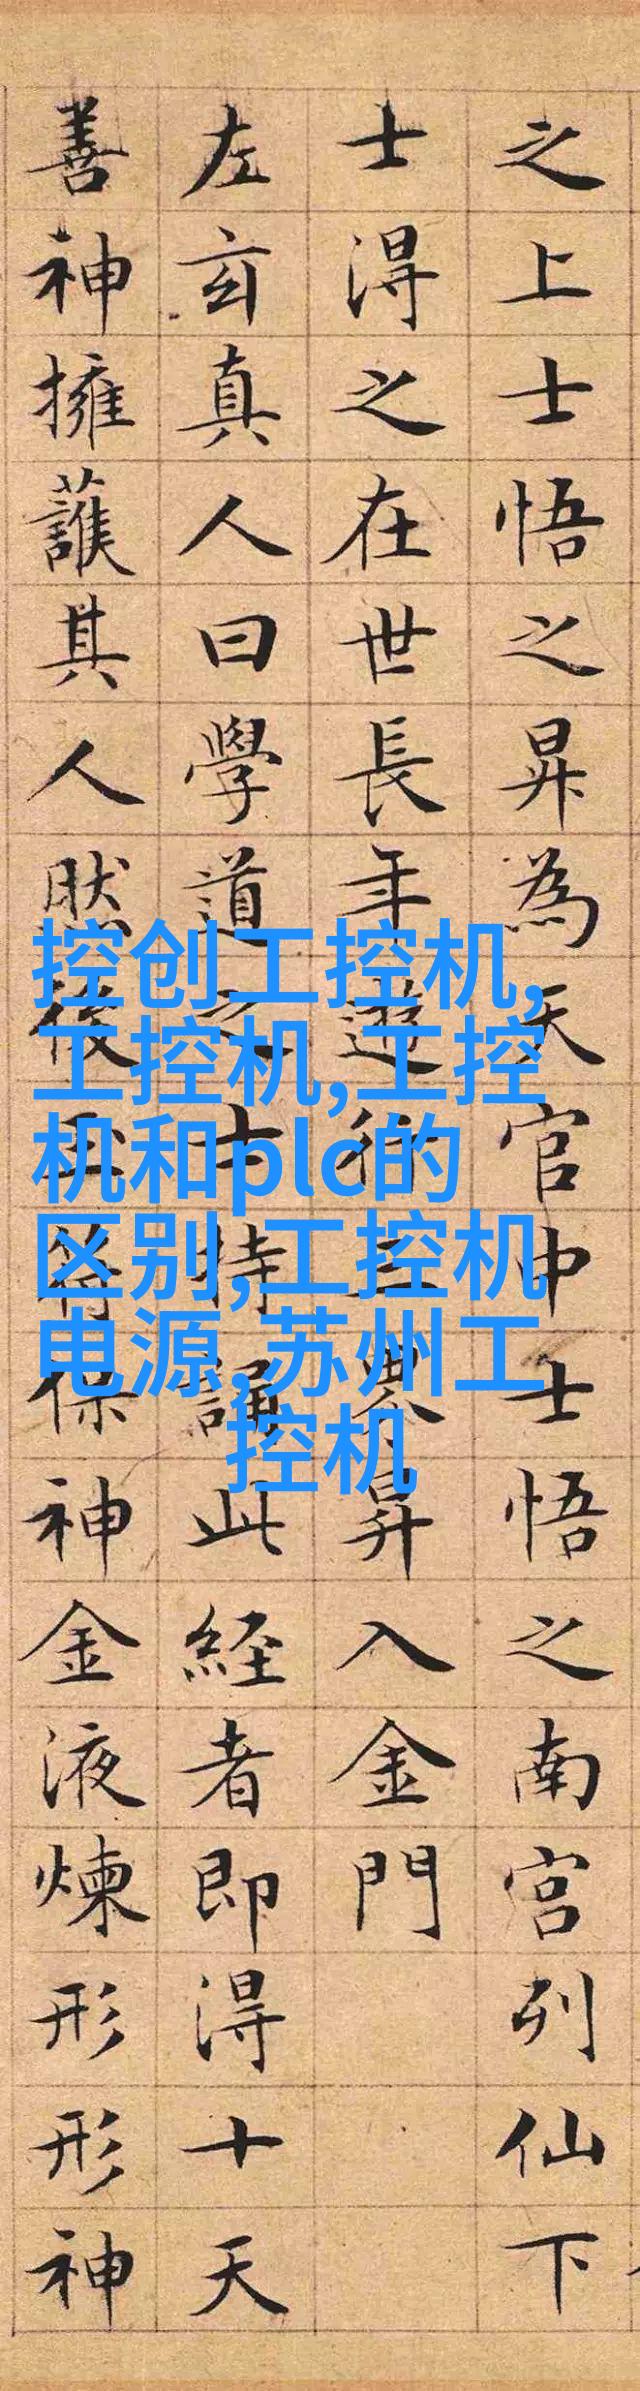 之上士悟之昇為天官中士悟之南宮列仙下
士得之在世長年遊行三界昇入金門
左玄真人曰學道之士持誦此経者即得十天
善神擁護其人然後玉符保神金液煉形形神
控创工控机,
工控机,工控
机和plc的
区别,工控机
电源,苏州工
控机